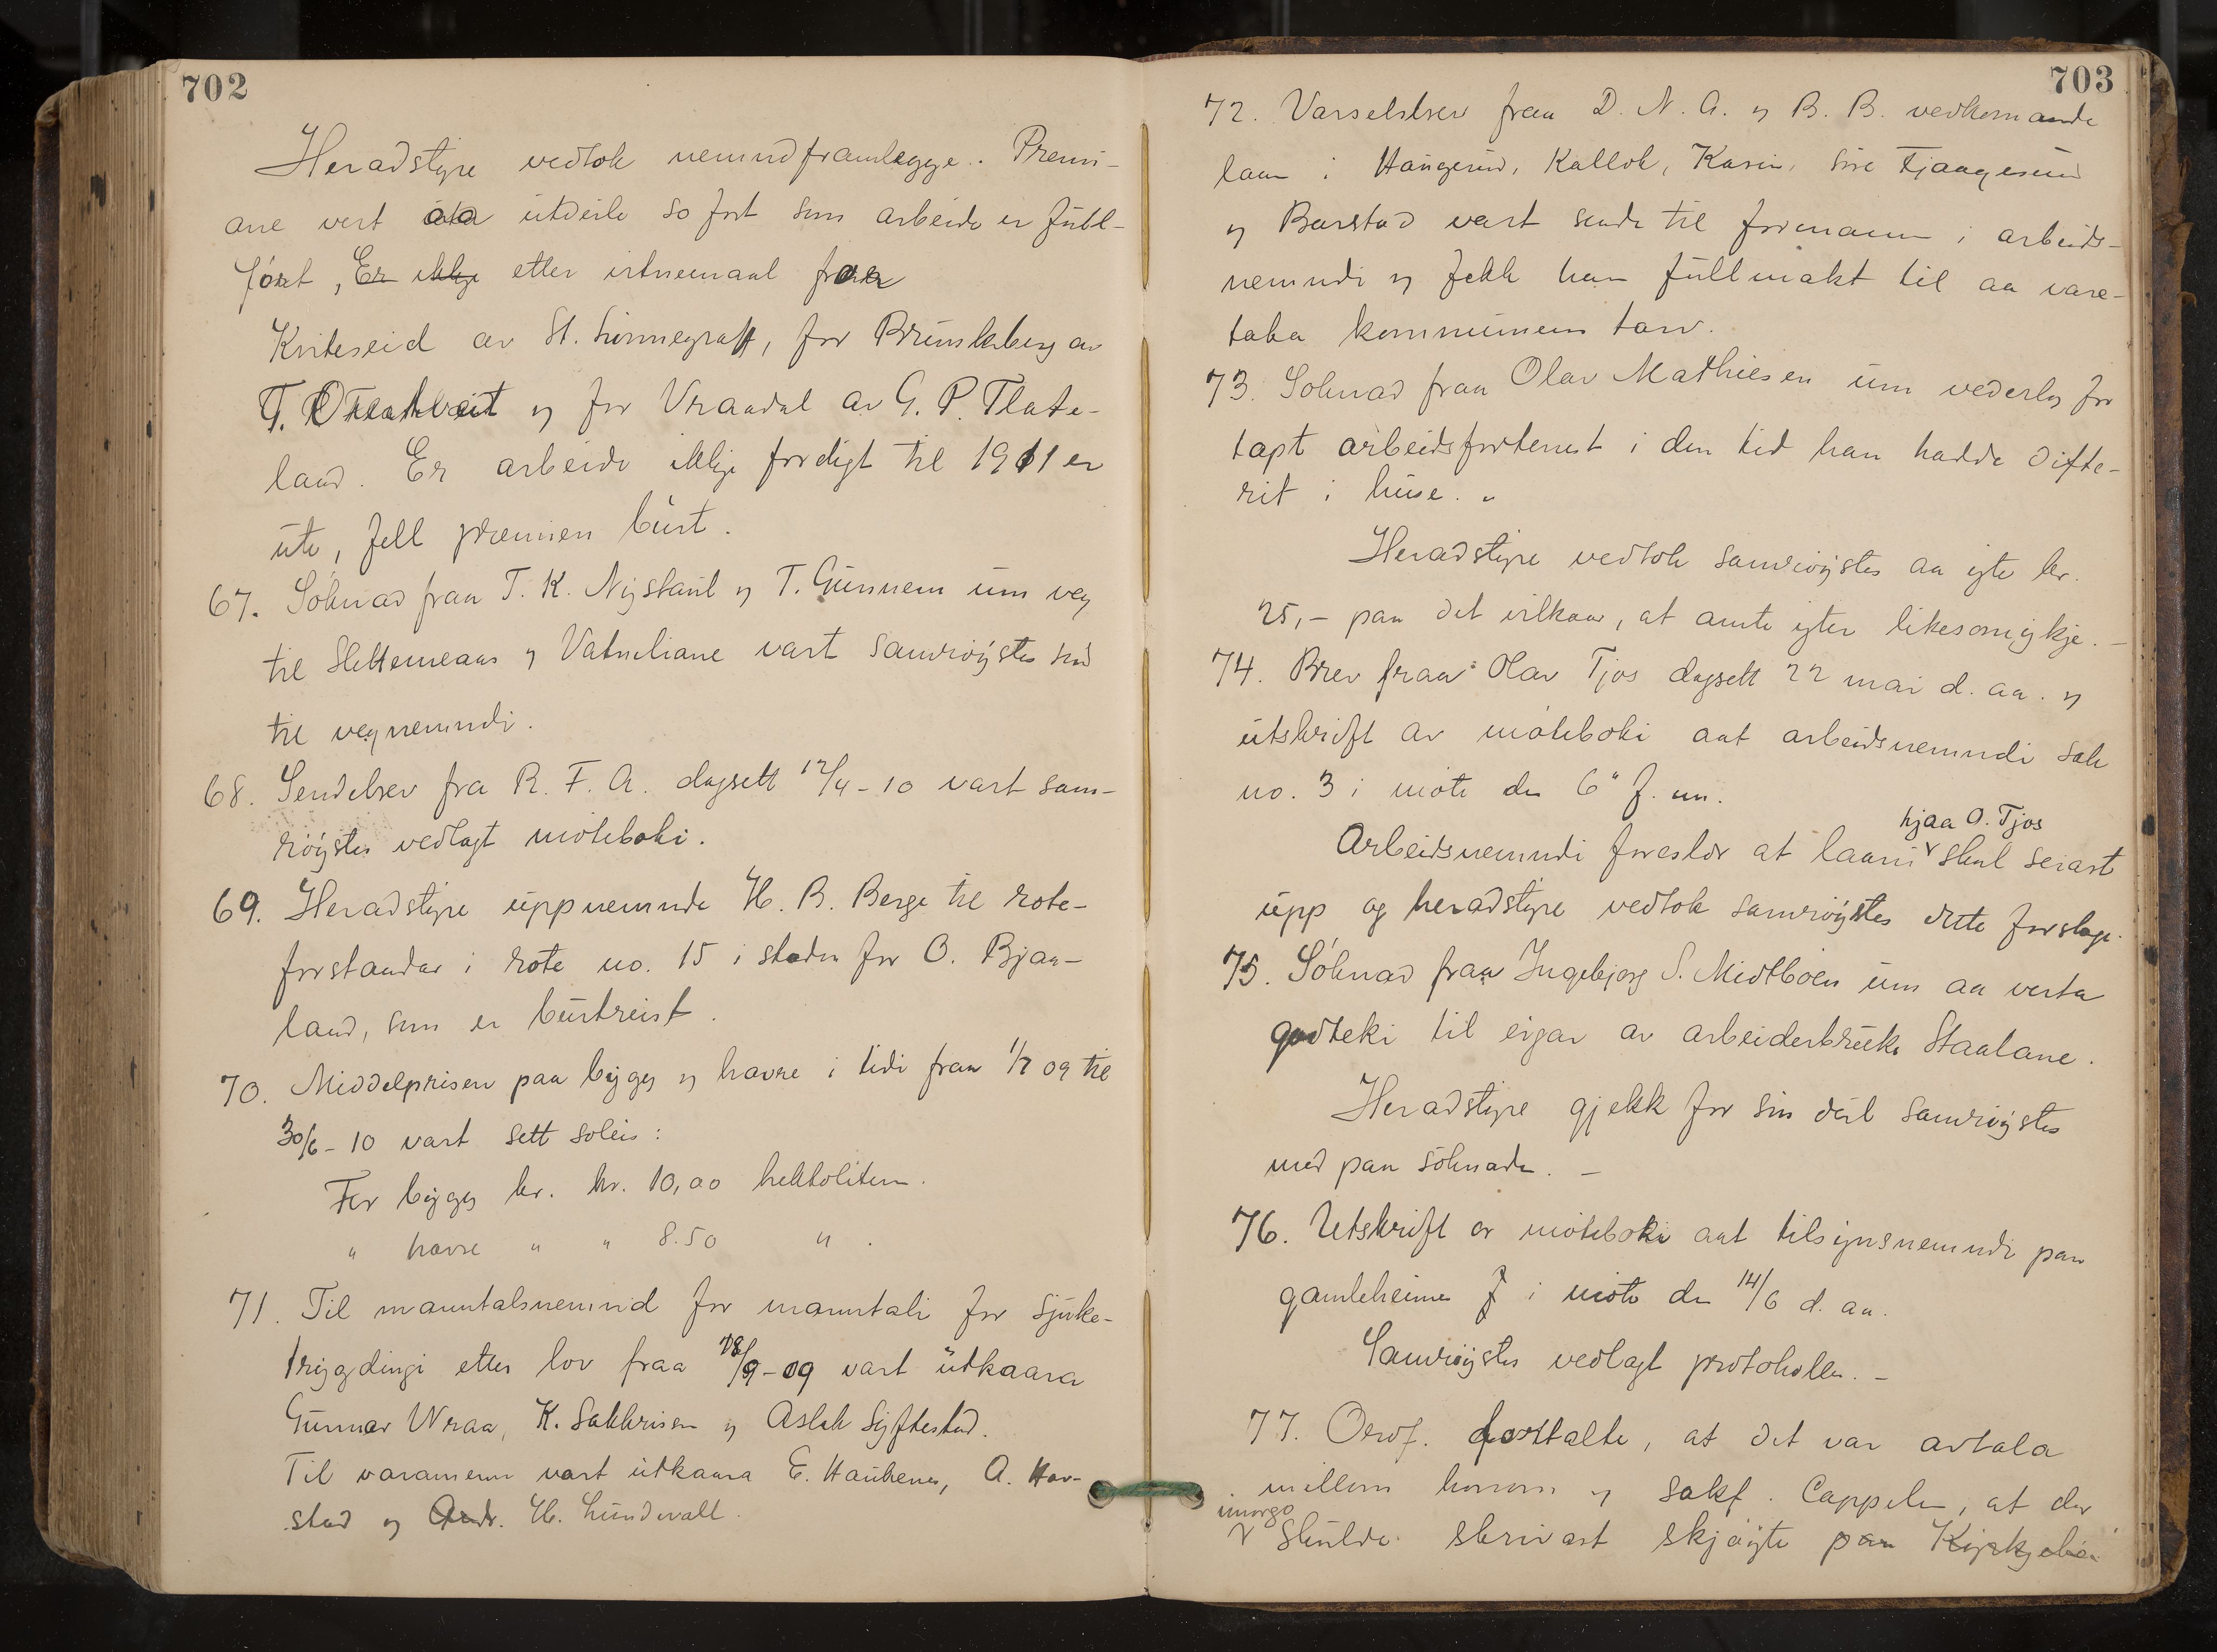 702
Heradstyre vedtok nemndframlegge. Premi-
ane vert utdeilt so fort som arbeide er full-
ført, Er ikkje etter irtnemaal fraa
Kviteseid av St. Sinnegraff, for Brunkeberg av
T. og for Vraadal av G. P. Flate-
land. Er arbeide ikkje fordigt til 1911 er
ute, fell premien burt.
67. Søknad fraa T. K. Nystaul og T. Gunnem um veg
til Slettemeaas og Vatnliane vart samrøystes snd
til vegnemndi.
68. Sendebrev fra R. F. A. dagsett 12/4-10 vart sam-
røystes vedlagt møteboki.
69. Heradstyre uppnemnde H. B. Berge til rote-
forstandar i rote no. 15 i staden for O. Bjaa-
land, som er burtreist.
70. Middelprisen paa bygg og havre i tidi fraa 1/7 09 til
30/6-10 vart sett soleis:
For bygg kr. kr. 10,00 hektoliteren.
" havre " " 8.50 " .
71. Til manntalsnemnd for manntali for sjuke-
trygdingi etter lov fraa 18/9-09 vart utkaara
Gunnar Wraa, K. Sakkrisen og Aslak Syftestad.
Til varamenn vart utkaara E. Haukenes, A. Hov-
stad og Andr. H. Lundevall.
703
72. Varselsbrev fraa D. N. A. og B. B. vedkomande
laan i Haugerud, Kallok, Kasin, Sire Fjaagesund
og Barstad vart sende til formann i arbeids-
nemndi og fekk han fullmakt til aa vare-
taka kommunens tarv.
73. Søknad fraa Olav Mathiesen um vederlag for
tapt arbeidsfortenest i den tid han hadde difte-
rit i huse. "
Heradstyre vedtok samrøystes aa yte kr.
25,- paa det vilkaar, at amte yter likesomykje. -
74. Brev fraa Olav Tjos dagsett 22 mai d. aa. og
utskrift av møteboki aat arbeidsnemndi sak
no. 3 i møte den 6" f. m.
hjaa O. Tjos
Arbeidsnemndi foreslær at laani skal seiast
upp og heradstyre vedtok samrøystes dette forslage.
75. Søknad fraa Ingebjorg S. Midtbøen um aa verta
godteki til eigar av arbeiderbruke Staalane.
Heradstyre gjekk for sin deil samrøystes
med paa søknaden. -
76. Utskrift av møteboki aat tilsynsnemndi paa
gamleheimen i møte den 14/6 d. aa.
Samrøystes vedlagt protokollen. -
77. Ordf. fortalte, at det var avtala
millom honom og sakf. Cappelen, at der
imorgo
skulde skrivast skjøyte paa Kyrkjebø